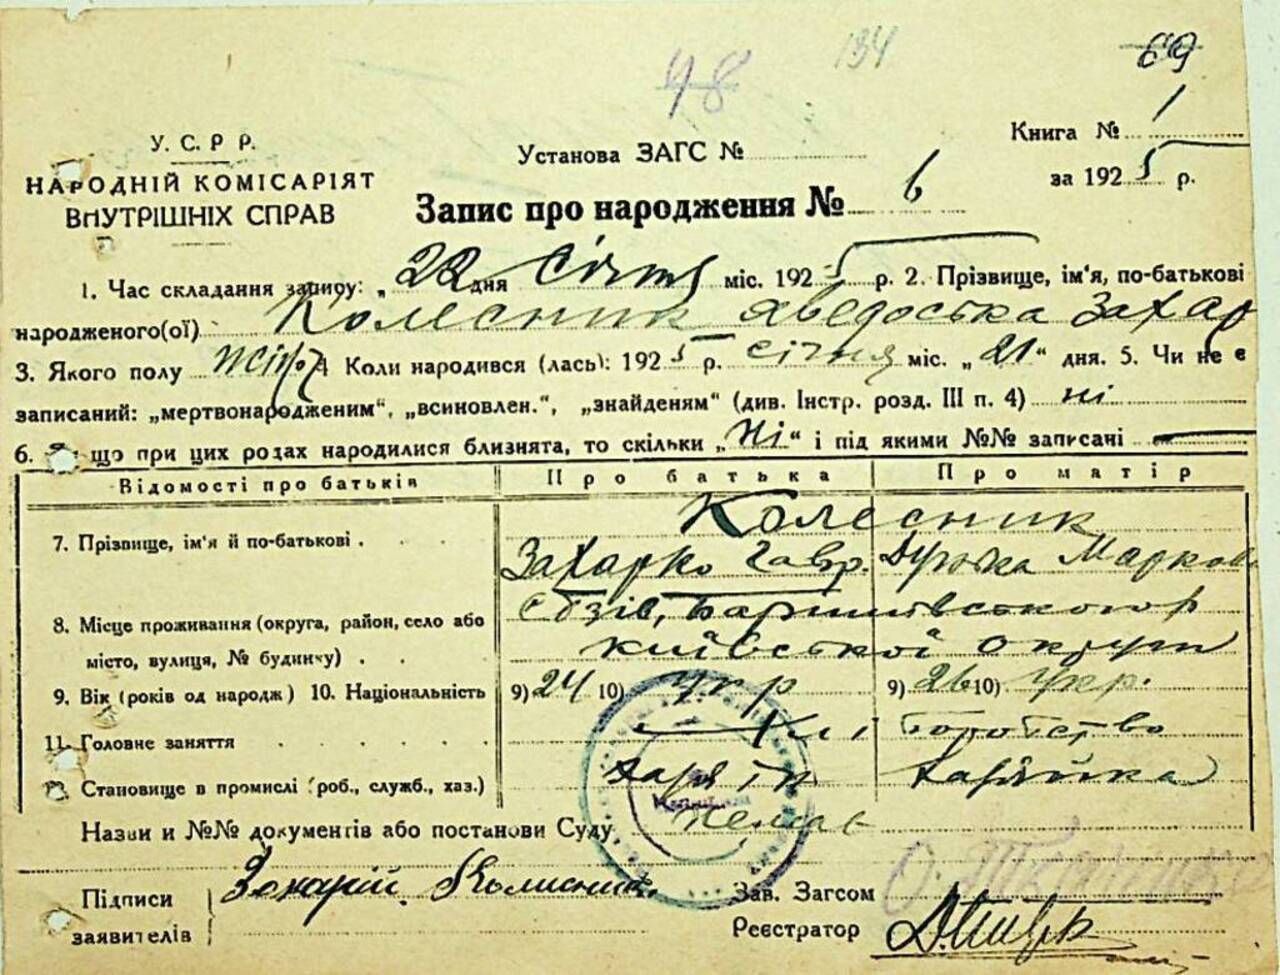 48 134 69
У. С. Р Р.
НАРОДНІЙ КОМІСАРІЯТ
ВНУТРІШНІХ СПРАВ
Установа ЗАГС №
Книга № 1
за 1925 р.
Запис про народження № 6
1. Час складання запису: „22 дня Січня міс. 1925 р. 2. Прізвище, ім'я, по-батькові
народженого(ої) Колесник Явдоська Захар
3. Якого полу жіно 4 Коли народився (лась): 1925 р. січня міс. „21" дня. 5. Чи не є
записаний: „мертвонародженим", „всиновлен.", „знайденям" (див. Інстр. розд. III п. 4) ні
6. що при цих родах народилися близнята, то скільки „Ні" і під якими №№ записані —
Відомості про батьків Про батька Про матір
7. Прізвище, ім'я й по-батькові . Колесник
Захарко Гавр. Марков
8. Місце проживання (округа, район, село або місто, вулиця, № будинку) . Баришівського р
київської округи
9. Вік (років од народж) 10. Національність 9) 24 10) укр 9) 26 10) Укр.
11. Головне заняття Хліборобство
Становище в промислі (роб., служб., хаз.) хазяїн хазяйка
Назви и №№ документів або постанови Суду немає
Підписи заявителів Захарій Колисник.
Зав. Загсом
Реєстратор